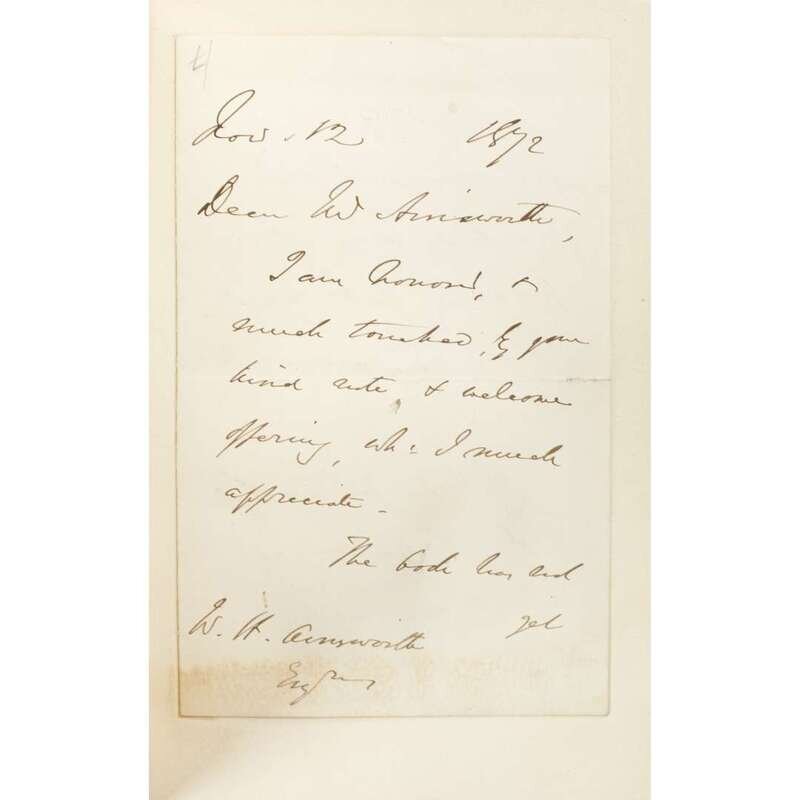 Nov. 12 1872
Dear Mr Ainsworth,
I am honored, &
much touched, by your
kind note, & welcome
offering, wh: I much
appreciate.
The book has not
yet
W. H. Ainsworth
Esqre